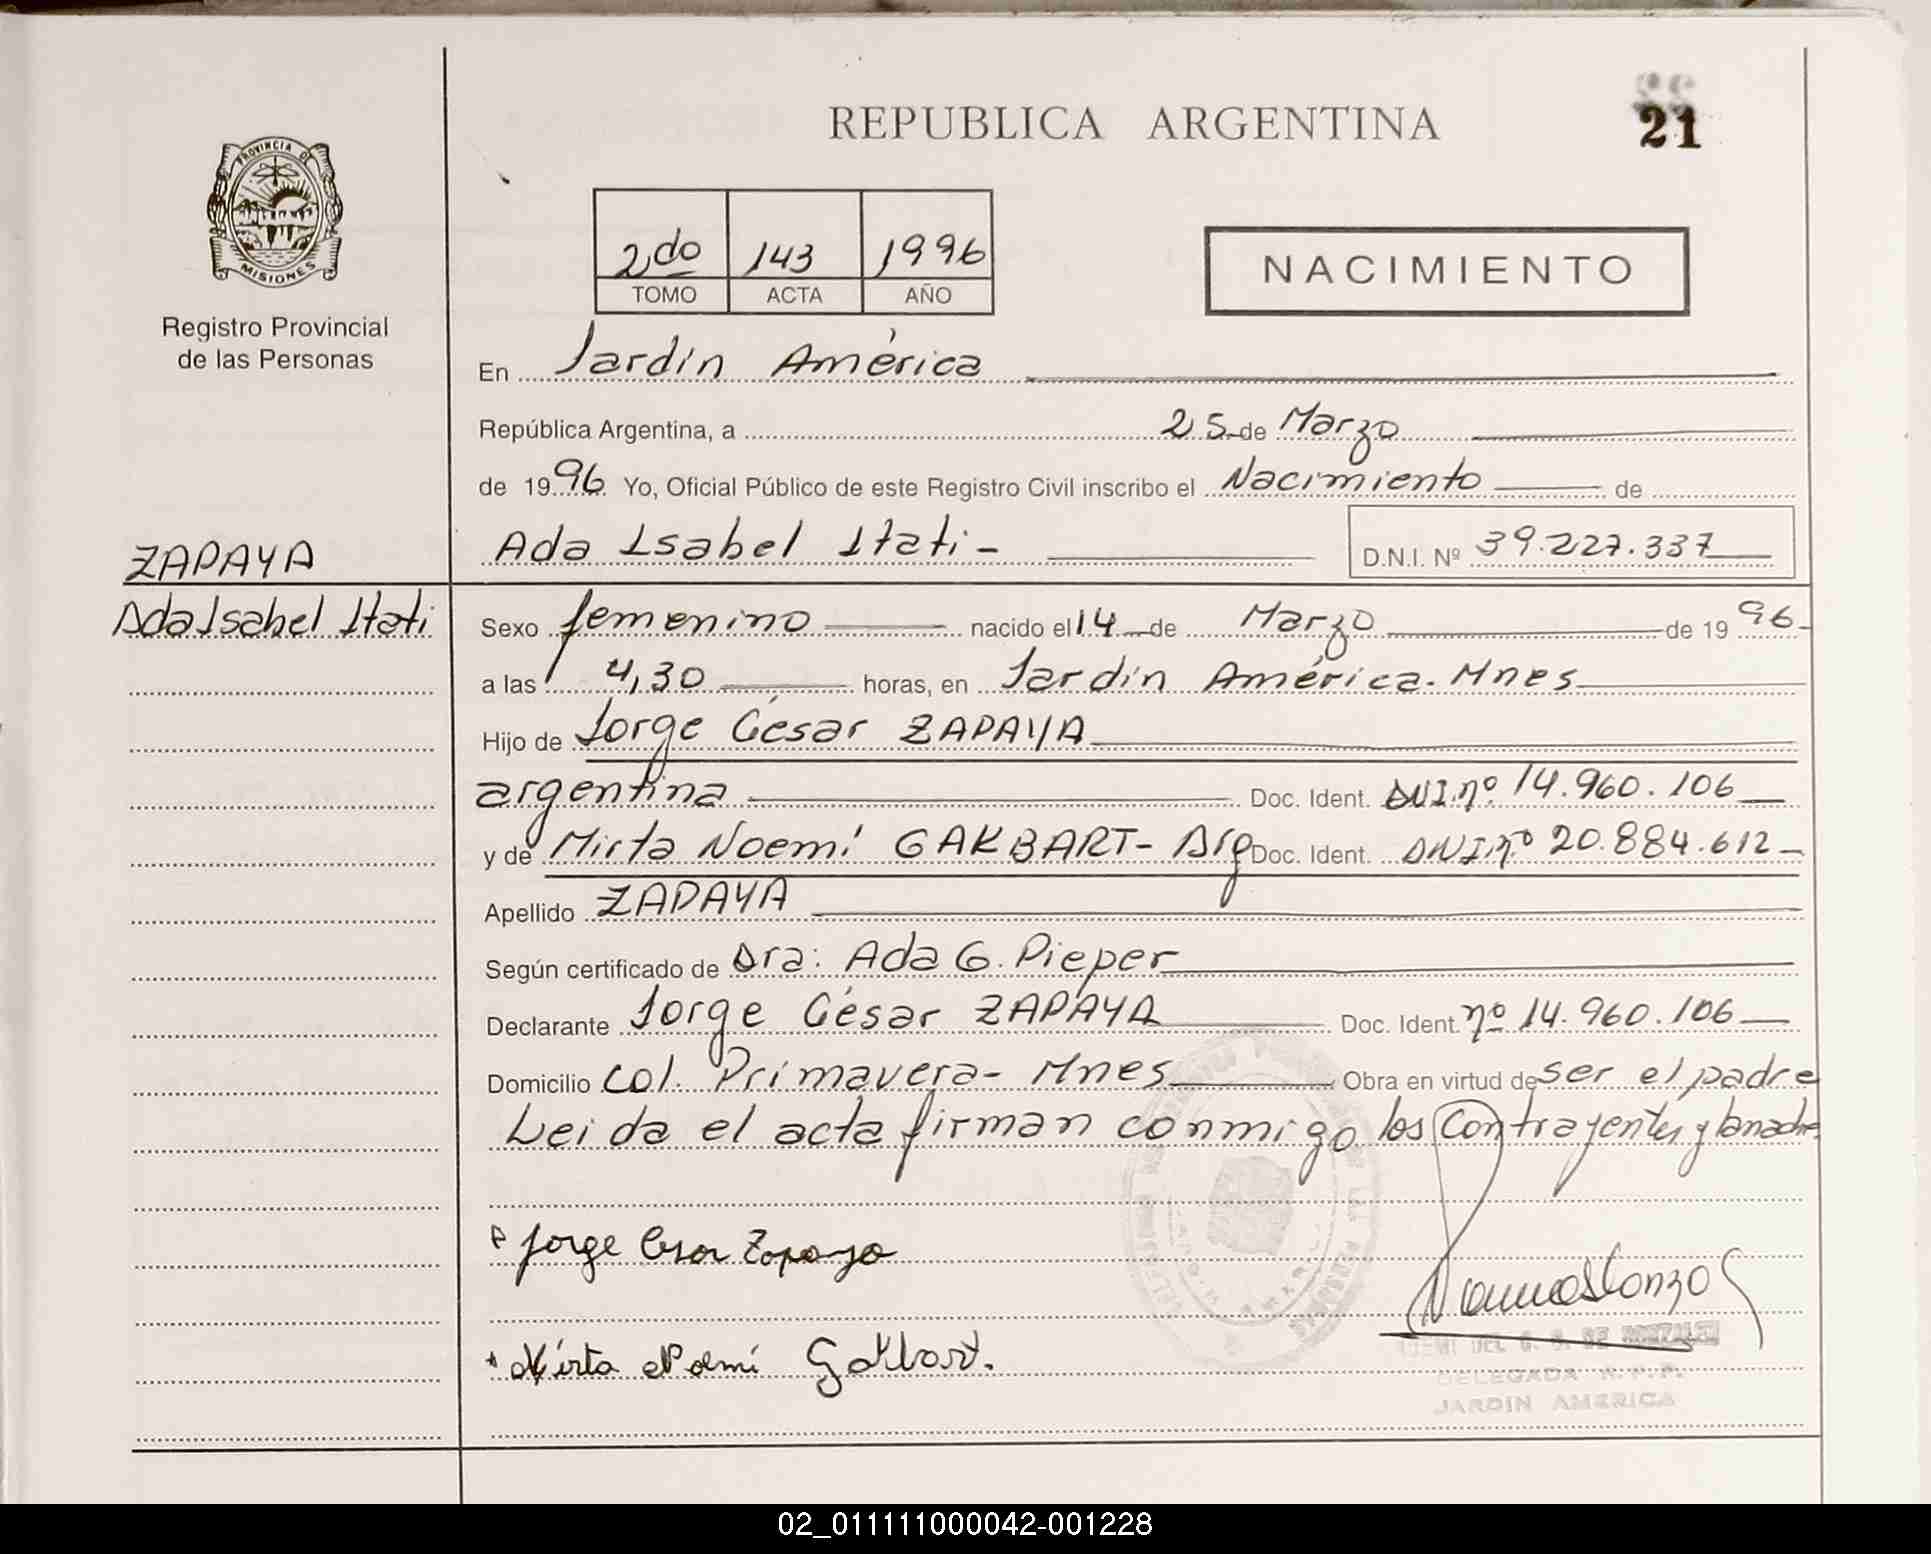 REPUBLICA ARGENTINA
21
PROVINCIA DE
MISIONES
Registro Provincial
de las Personas
2do 143 1996
TOMO ACTA AÑO
NACIMIENTO
En Jardín América
República Argentina, a 25 de Marzo
de 1996 Yo, Oficial Público de este Registro Civil inscribo el Nacimiento de
ZAPAYA
Ada Isabel Itatí
Ada Isabel Itati - D.N.I. Nº 39.227.337
Sexo femenino nacido el 14 de Marzo de 1996
a las 4,30 horas, en Jardín América. Mnes
Hijo de Jorge César ZAPAYA
argentina Doc. Ident. DNI.nº 14.960.106
y de Mirta Noemí GAKBART- Arg Doc. Ident. DNI.nº 20.884.612
Apellido ZAPAYA
Según certificado de Dra: Ada G. Pieper
Declarante Jorge César ZAPAYA Doc. Ident. nº 14.960.106
Domicilio Col. Primavera- Mnes Obra en virtud de ser el padre
Leida el acta firman conmigo los Contrayentes y la madre
Jorge Cesar Zapaya
Mirta Noemí Gakbart.
DELEGADA R.P.P.
JARDIN AMERICA
02_011111000042-001228